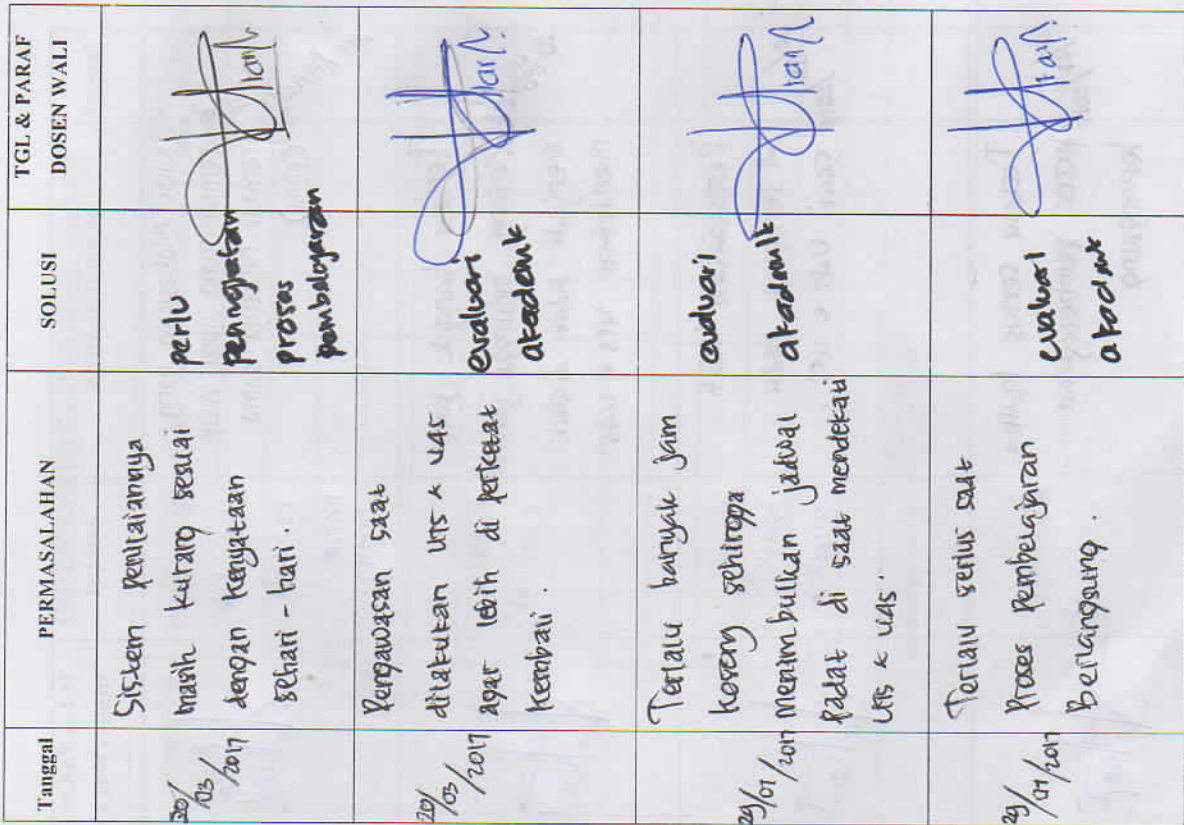 Tanggal
PERMASALAHAN
SOLUSI
TGL & PARAF
DOSEN WALI
20/03/2017
Sistem penilaiannya
masih kurang sesuai
dengan kenyataan
sehari-hari.
perlu
peningkatan
proses
pembelajaran
20/03/2017
Pengawasan saat
dilakukan UTS & UAS
agar lebih di perketat
kembali.
evaluasi
akademik
29/07/2017
Terlalu banyak jam
kosong sehingga
menimbulkan jadwal
padat di saat mendekati
UTS & UAS.
evaluasi
akademik
29/07/2017
Terlalu serius saat
Proses Pembelajaran
Berlangsung.
evaluasi
akademik